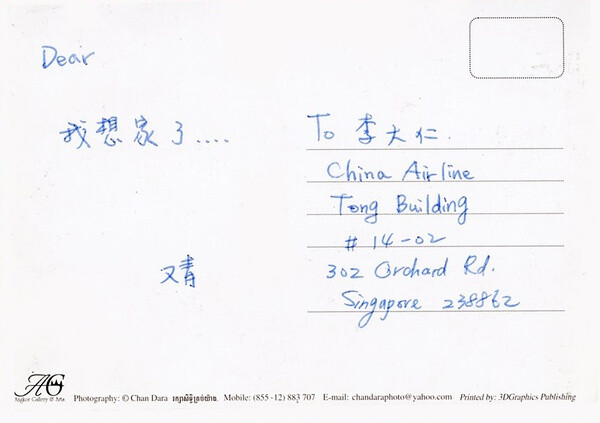 Dear
我想家了....
又青
To 李大仁.
China Airline
Tong Building
# 14-02
302 Orchard Rd.
Singapore 238862
AG
Angkor Gallery & Arts
Photography: © Chan Dara រក្សាសិទ្ធិគ្រប់យ៉ាង. Mobile: (855 -12) 883 707 E-mail: chandaraphoto@yahoo.com Printed by: 3DGraphics Publishing